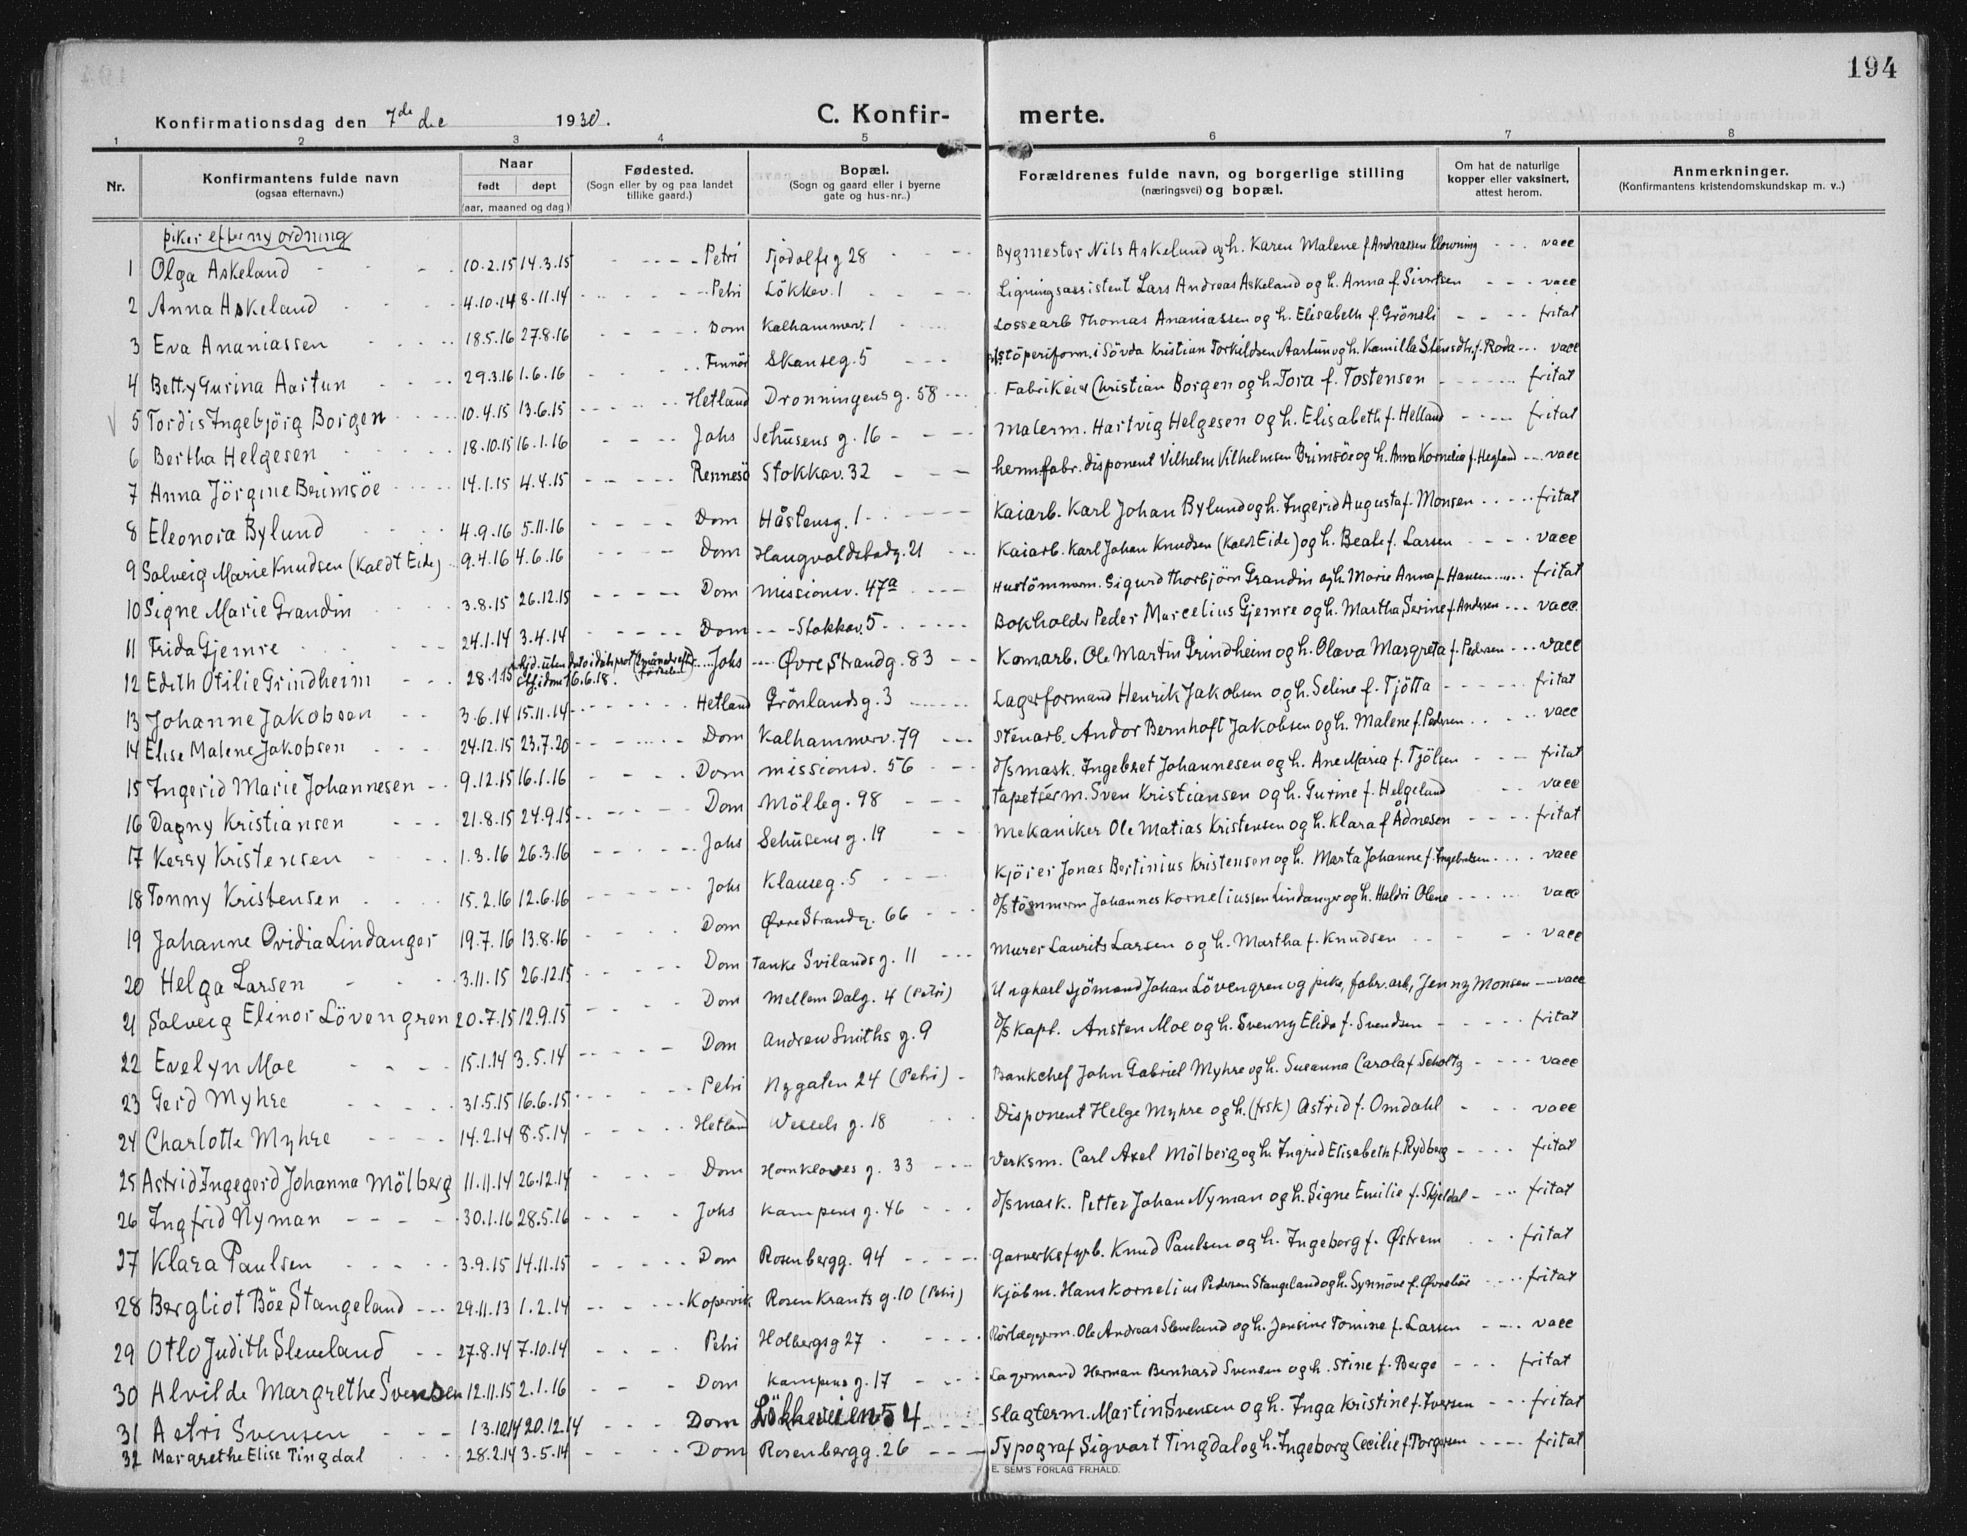 194
Konfirmationsdag den 7de dec 1930.
C. Konfirmerte.
1 2 3 4 5 6 7 8
Nr. | Konfirmantens fulde navn (ogsaa efternavn.) | Naar født døpt (aar, maaned og dag) | Fødested. (Sogn eller by og paa landet tillike gaard.) | Bopæl. (Sogn og gaard eller i byerne gate og hus-nr..) | Forældrenes fulde navn, og borgerlige stilling (næringsvei) og bopæl. | Om hat de naturlige kopper eller vaksinert, attest herom. | Anmerkninger. (Konfirmantens kristendomskundskap m. v..)
piker efter ny ordning
1 Olga Askeland 10.2.15 14.3.15 Petri Tjodolfsg 28 Bygmester Nils Askeland og h. Karen Malene f. Andreassen Klowning vacc
2 Anna Askeland 4.10.14 8.11.14 Petri Lökkev. 1 Ligningsassistent Lars Andreas Askeland og h. Anna f. Sivertsen vacc
3 Eva Ananiassen 18.5.16 27.8.16 Dom Kalhammerv. 1 Lossearb Thomas Ananiassen og h. Elisabeth f. Grönsli fritat
4 Betty Gurina Aartun 29.3.16 1.6.16 Finnöi Skanseg. 5 støperiform. i Sövda Kristian Torkildsen Aartun og h. Kamilla Stensdtr. f. Roda vacc
5 Tordis Ingebjörg Borgen 10.4.15 13.6.15 Hetland Dronningensg. 58 Fabrikeier Christian Borgen og h. Tora f. Tostensen fritat
6 Bertha Helgesen 18.10.15 16.1.16 Johs Sehusens g. 16 Malerm. Hartvig Helgesen og h. Elisabeth f. Helland fritat
7 Anna Jörgine Brimsöe 14.1.15 4.4.15 Rennesö Stokkav. 32 hermfabr. disponent Vilhelm Vilhelmsen Brimsöe og h. Anna Kornelia f. Hegland vacc
8 Eleonora Bylund 4.9.16 5.11.16 Dom Håsteinsg. 1 Kaiarb. Karl Johan Bylund og h. Ingerid Augusta f. Monsen fritat
9 Solveig Marie Knudsen (kaldt Eide) 9.4.16 4.6.16 Dom Haugvoldstadg. 21 Kaiarb. Karl Johan Knudsen (kaldt Eide) og h. Beate f. Larsen vacc
10 Signe Marie Grandin 3.8.15 26.12.15 Dom Missionsv. 47a Hustömmerm. Sigurd Thorbjörn Grandin og h. Marie Anna f. Hansen fritat
11 Frida Gjemre 24.1.14 3.4.14 Dom Stokkav. 5 Bokholder Peder Marcelius Gjemre og h. Martha Serine f. Andersen vacc
12 Edith Otilie Grindheim 28.1.15 6.6.18. Johs Øvre Strandg. 83 Komarb. Ole Martin Grindheim og h. Olava Margreta f. Pedersen vacc
13 Johanne Jakobsen 3.6.14 15.11.14 Hetland Grönlandsg. 3 Lagerformand Henrik Jakobsen og h. Seline f. Tjötta fritat
14 Elise Malene Jakobsen 24.12.15 23.7.20 Dom Kalhammerv. 79 Stenarb. Andor Bernhoft Jakobsen og h. Malene f. Pedersen vacc
15 Ingerid Marie Johannesen 9.12.15 16.1.16 Dom Missionsv. 56 d/s mask. Ingebret Johannesen og h. Ane Maria f. Tjölsen fritat
16 Dagny Kristiansen 21.8.15 24.9.15 Dom Mölleg. 98 Tapetserm. Sven Kristiansen og h. Gurine f. Helgeland vacc
17 Kerry Kristensen 1.3.16 26.3.16 Johs Sehusensg. 19 Mekaniker Ole Matias Kristensen og h. Klara f Ådnesen fritat
18 Tonny Kristensen 15.2.16 12.6.16 Johs Klauseg. 5 Kjörer Jonas Bertinius Kristensen og h. Marta Johanne f. Ingebretsen vacc
19 Johanne Ovidia Lindanger 19.7.16 13.8.16 Dom Øvre Strandg. 66 d/s tömmerm Johannes Korneliussen Lindanger og h. Haldri Olene vacc
20 Helga Larsen 3.11.15 26.12.15 Dom Tanke Svilandsg. 11 Murer Laurits Larsen og h. Martha f. Knudsen vacc
21 Solveig Elinor Lövengren 20.7.15 12.9.15 Dom Mellem Dalg. 4 (Petri) Ungkarl sjömand Johan Lövengren og pike, fabr. arb, Jenny Monsen vacc
22 Evelyn Moe 15.1.14 3.5.14 Dom Andrew Smiths g. 9 d/s kapt. Ansten Moe og h. Svenny Elida f. Svendsen fritat
23 Gerd Myhre 31.5.15 16.6.15 Petri Nygaten 24 (Petri) Bankchef John Gabriel Myhre og h. Susanna Carola f. Scholtz vacc
24 Charlotte Myhre 14.2.14 8.5.14 Hetland Wessels g. 18 Disponent Helge Myhre og h. (frsk) Astrid f. Omdahl vacc
25 Astrid Ingegerd Johanna Mölberg 11.11.14 26.12.14 Dom Hornkloves g. 33 Verksm. Carl Axel Mölberg og h. Ingrid Elisabeth f. Rydberg fritat
26 Ingfrid Nyman 30.1.16 28.5.16 Johs Kampens g. 46 d/s mask. Petter Johan Nyman og h. Signe Emilie f. Skjeldal fritat
27 Klara Paulsen 3.9.15 14.11.15 Dom Rosenbergg. 94 Gasverksfyrb. Knud Paulsen og h. Ingeborg f. Østrem fritat
28 Bergliot Böe Stangeland 29.11.13 1.2.14 Kopervik Rosenkrants g. 10 (Petri) Kjöbm. Hans Kornelius Pedersen Stangeland og h. Synnöve f. Øvreböe fritat
29 Otlo Judith Sleveland 27.8.14 7.10.14 Petri Holbergsg 27 Rörlæggerm. Ole Andreas Sleveland og h. Jensine Tomine f. Larsen vacc
30 Alvilde Margrethe Svensen 12.11.15 2.1.16 Dom Kampens g. 17 Lagermand Herman Bernhard Svensen og h. Stine f. Berge fritat
31 Astri Svensen 13.10.14 20.12.14 Dom Lökkeveien 54 Slagterm. Martin Svensen og h. Inga Kristine f. Iversen fritat
32 Margrethe Elise Tingdal 28.2.14 3.5.14 Dom Rosenbergg. 26 Typograf Sigvart Tingdal og h. Ingeborg Cecilie f. Torgersen fritat
E. SEM'S FORLAG FR.HALD.